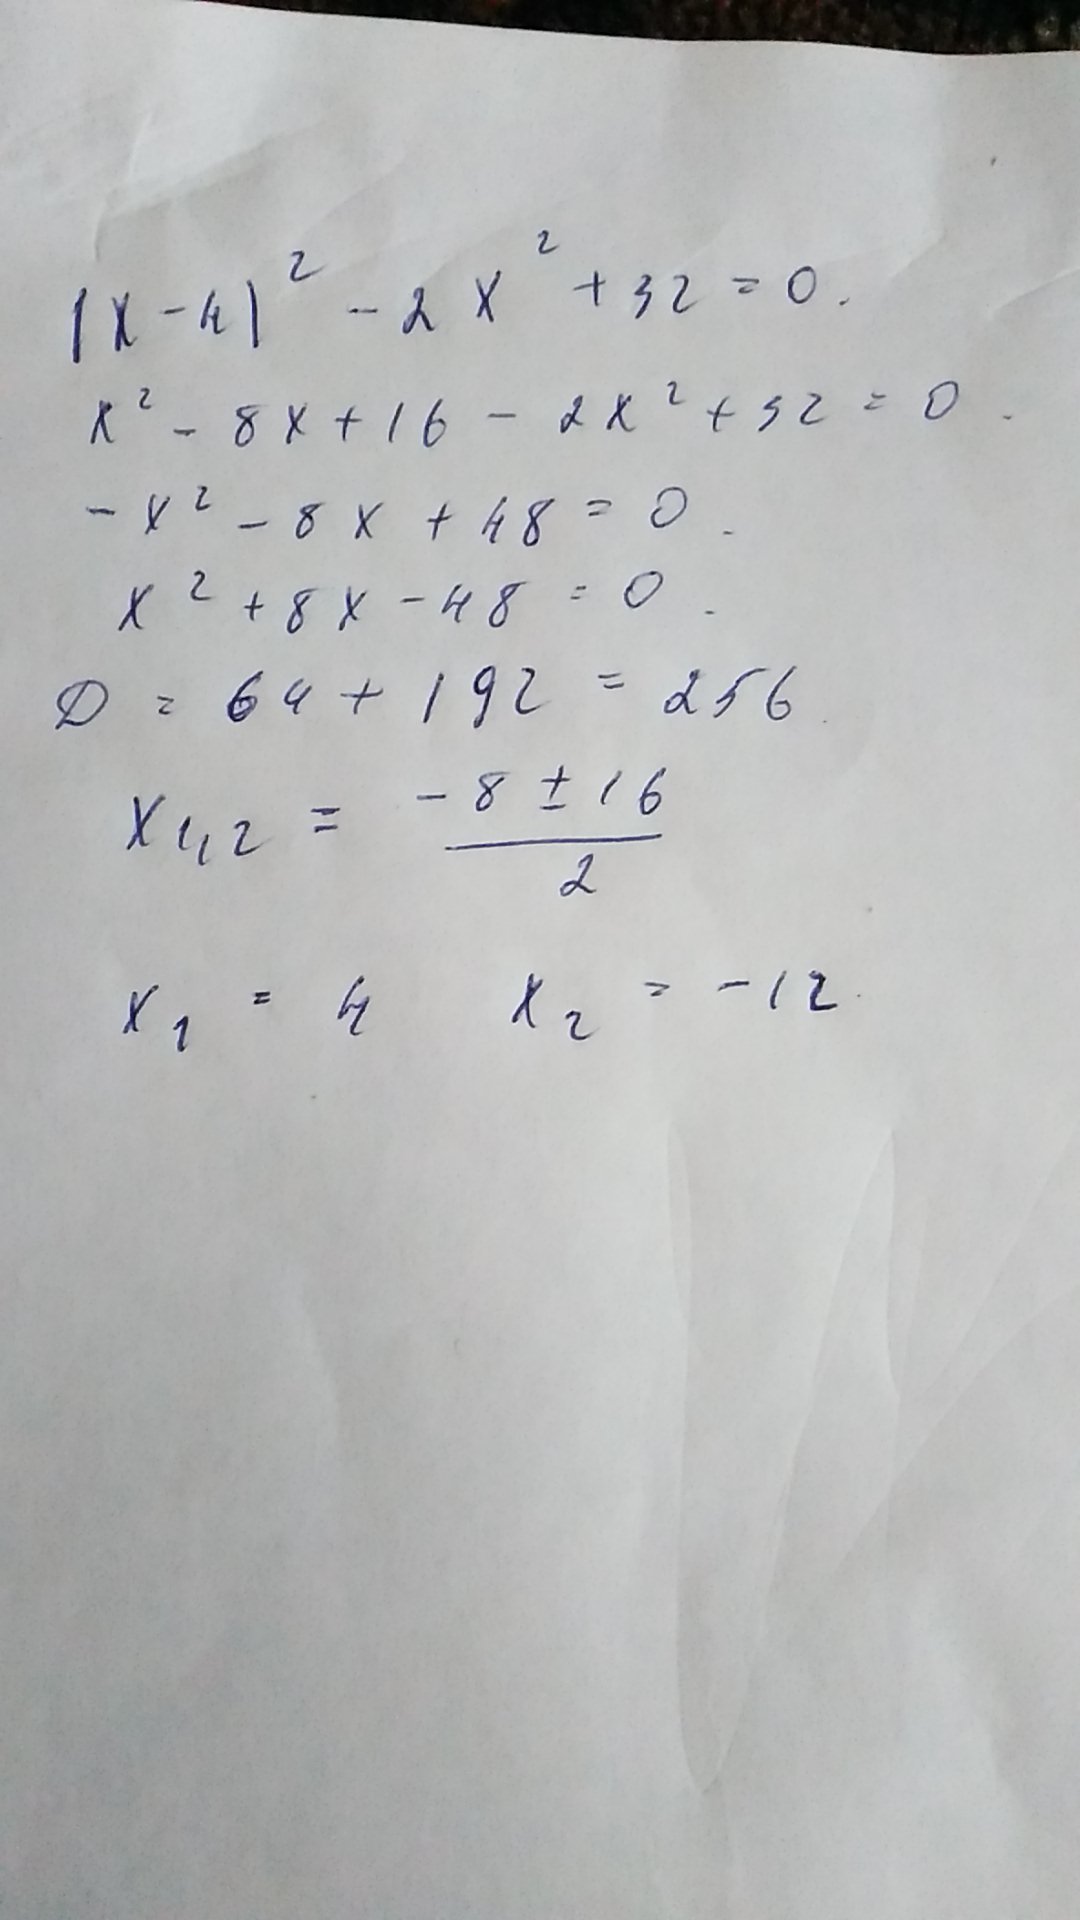 |x-4|² - 2x² + 32 = 0.
x² - 8x + 16 - 2x² + 32 = 0.
-x² - 8x + 48 = 0.
x² + 8x - 48 = 0.
D = 64 + 192 = 256.
x₁,₂ = (-8 ± 16)/2
x₁ = 4 x₂ = -12.